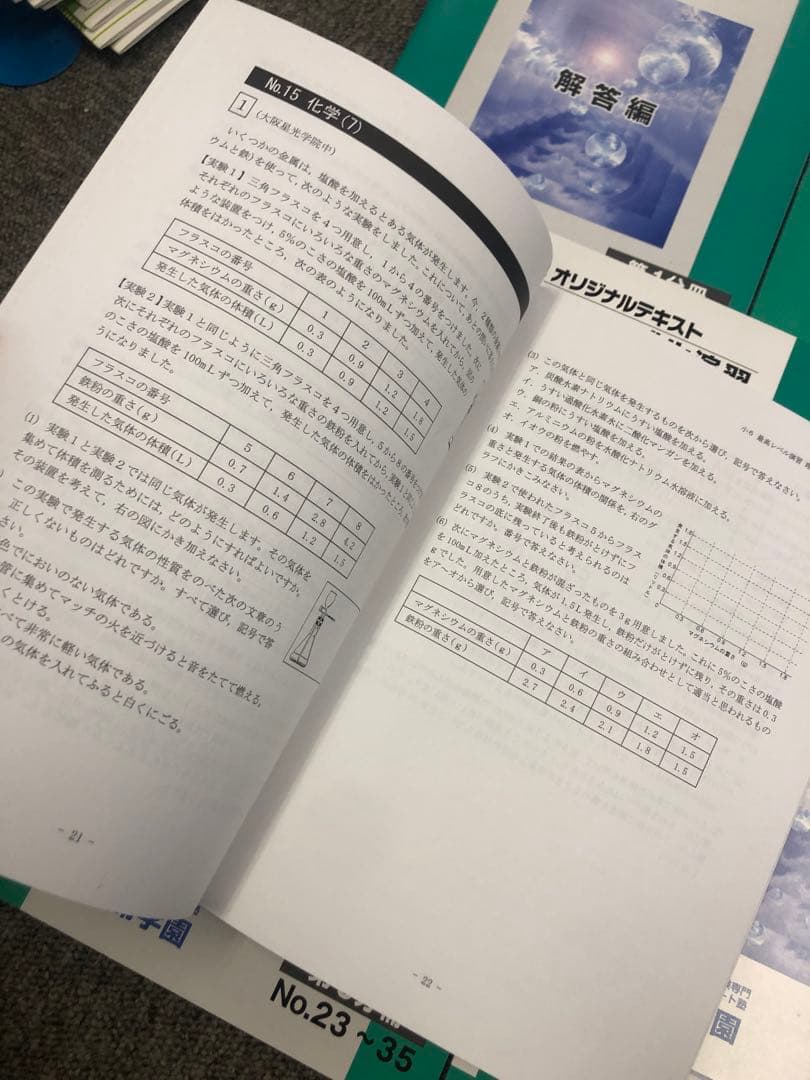 No.15 化学(7)
1 (大阪星光学院中)
いくつかの金属は,塩酸を加えるとある気体が発生します。今,2種類の金属
ウムと鉄)を使って,次のような実験をしました。これについて,あとの問いに答え
【実験1】三角フラスコを4つ用意し,1から4の番号をつけました。次に
それぞれのフラスコにいろいろな重さのマグネシウムを入れてから,図の
ような装置をつけ,5%のこさの塩酸を100mLずつ加えて,発生した気体の
体積をはかったところ,次の表のようになりました。
フラスコの番号 1 2 3 4
マグネシウムの重さ(g) 0.3 0.9 1.2 1.8
発生した気体の体積(L) 0.3 0.9 1.2 1.5
【実験2】実験1と同じように三角フラスコを4つ用意し,5から8の番号を
次にそれぞれのフラスコにいろいろな重さの鉄粉を入れてから,実験1と同じ
のこさの塩酸を100mLずつ加えて,発生した気体の体積をはかったところ,次の
うになりました。
フラスコの番号 5 6 7 8
鉄粉の重さ(g) 0.7 1.4 2.8 4.2
発生した気体の体積(L) 0.3 0.6 1.2 1.5
(1) 実験1と実験2では同じ気体が発生します。その気体を
集めて体積を測るためには,どのようにすればよいですか。
その装置を考えて,右の図にかき加えなさい。
この実験で発生する気体の性質をのべた次の文章のう
正しくないものはどれですか。すべて選び,記号で答
さい。
色でにおいのない気体である。
管に集めてマッチの火を近づけると音をたてて燃える。
くとける。
べて非常に軽い気体である。
の気体を入れてふると白くにごる。
- 21 -
小6 最高レベル演習
(3) この気体と同じ気体を発生するものを次から選び,記号で答えなさい。
ア.炭酸水素ナトリウムにうすい塩酸を加える。
イ.うすい過酸化水素水に二酸化マンガンを加える。
ウ.銅の粉にうすい塩酸を加える。
エ.アルミニウムの粉を水酸化ナトリウム水溶液に加える。
オ.イオウの粉を燃やす。
(4) 実験1での結果の表からマグネシウムの
重さと発生する気体の体積の関係を,右のグ
ラフにかきこみなさい。
(5) 実験2で使われたフラスコ5からフラス
コ8のうち,実験終了後も鉄粉がとけずにフ
ラスコの底に残っていると考えられるのは
どれですか。番号で答えなさい。
0 0.3 0.6 0.9 1.2 1.5 1.8
マグネシウムの重さ (g)
(6) 次にマグネシウムと鉄粉が混ざったものを3g用意しました。これに5%のこさの塩酸
を100mL加えたところ,気体が1.5L発生し,鉄粉だけがとけずに残り,その重さは0.3
gでした。用意したマグネシウムと鉄粉の重さの組み合わせとして適当と思われるもの
をア〜オから選び,記号で答えなさい。
ア イ ウ エ オ
マグネシウムの重さ(g) 0.3 0.6 0.9 1.2 1.5
鉄粉の重さ(g) 2.7 2.4 2.1 1.8 1.5
- 22 -
解答編
オリジナルテキスト
No.23~35